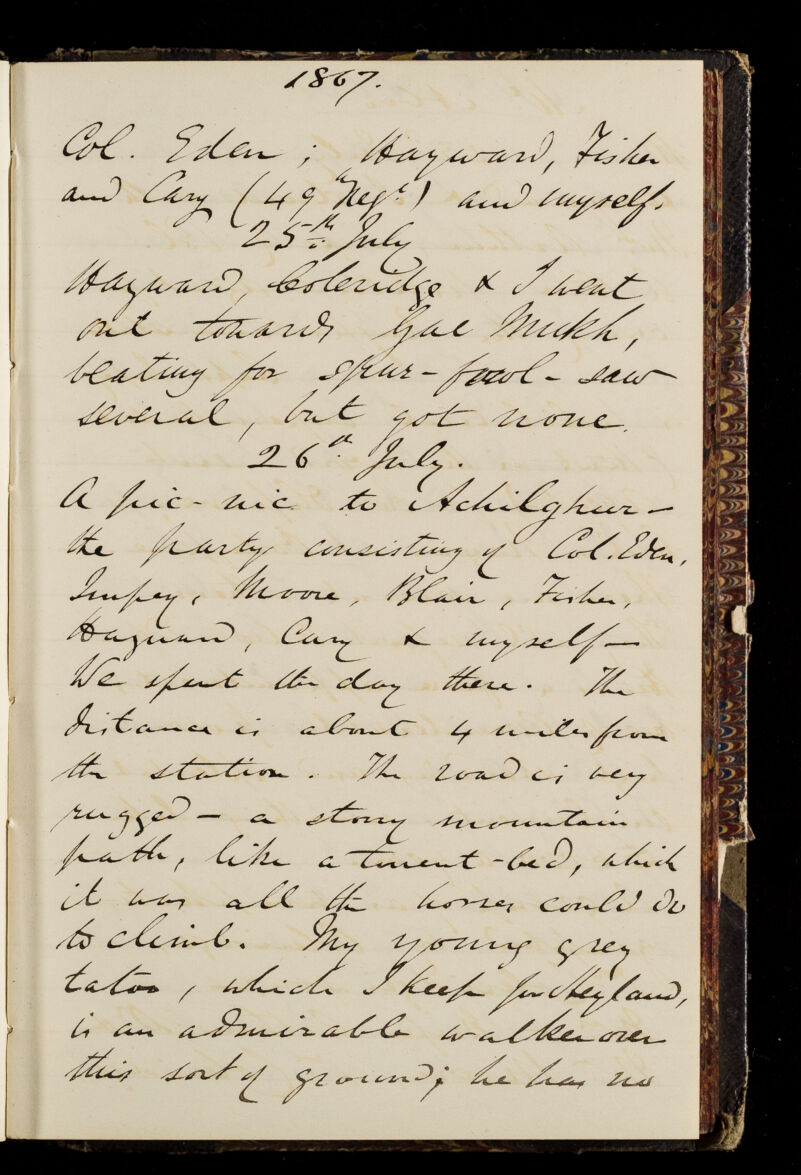 1867.
Col. Eden; Hayward, Fisher
and Cary (49th Regt.) and myself.
25th July
Hayward, Coleridge & I went
out towards Gae Mukh,
beating for spur-fowl - saw
several, but got none.
26th July.
A pic-nic to Achilghur -
the party consisting of Col. Eden,
Impey, Moore, Blair, Fisher,
Hayward, Cary & myself -
We spent the day there. The
distance is about 4 miles from
the station. The road is very
rugged - a stony mountain
path, like a torrent-bed, which
it was all the horses could do
to climb. My young grey
tatoo, which I keep for Heyland,
is an admirable walker over
this sort of ground; he has no